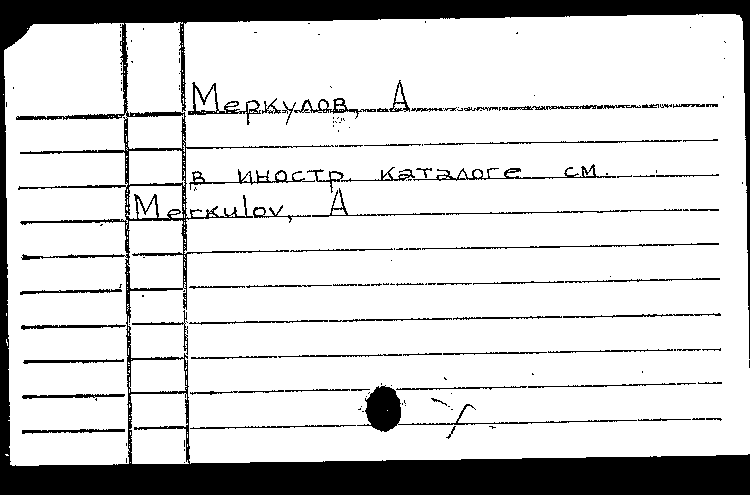 Меркулов, А
в иностр. каталоге см.
Merkulov, A